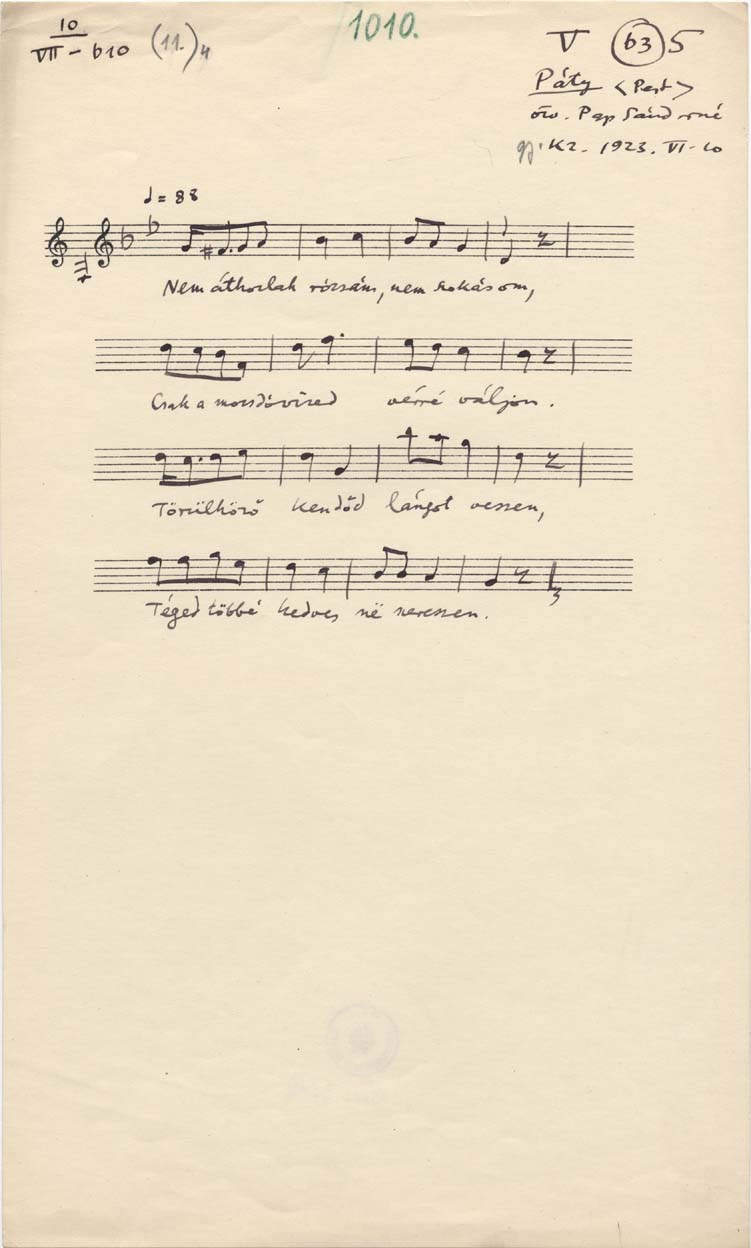 10
VII - b10 (11.)4
1010.
V (b3) 5
Páty <Pest>
özv. Pap Sándorné
gy. KZ. 1923. VI-10
♩= 88
Nem átkozlak rózsám, nem szokásom,
Csak a mosdóvized vérré váljon.
Törülköző kendőd lángot vessen,
Téged többé kedves në szeressen.